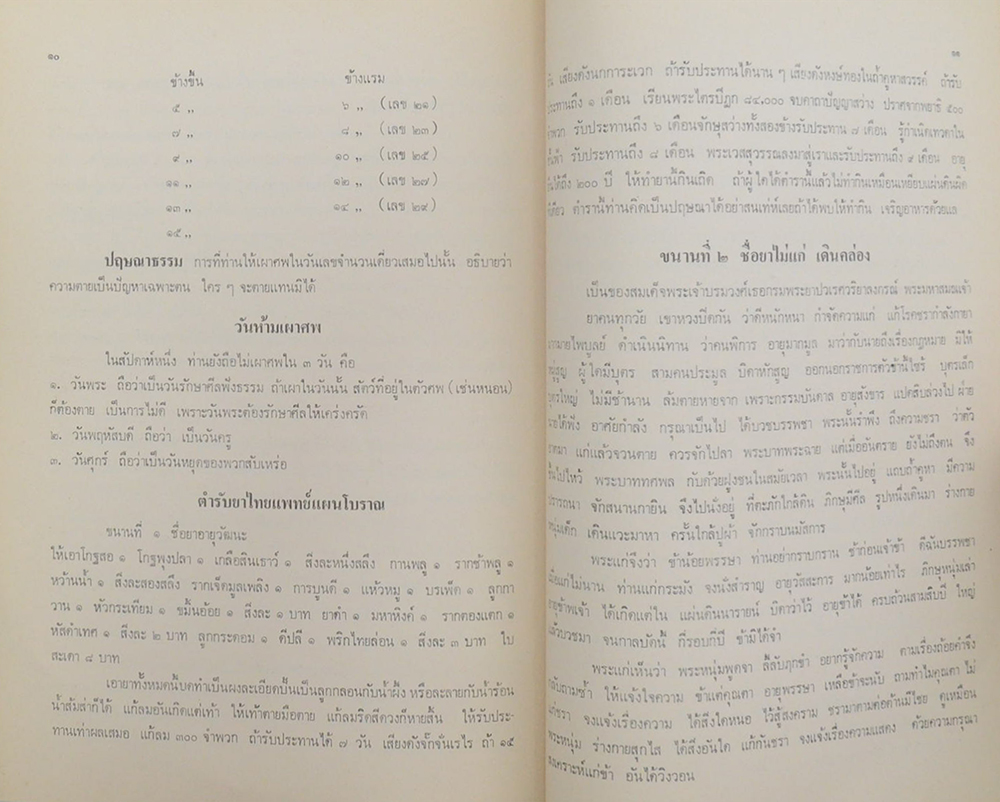 ๑๐
ข้างขึ้น ข้างแรม
๕ ,, ๖ ,, (เลข ๒๑)
๗ ,, ๘ ,, (เลข ๒๓)
๙ ,, ๑๐ ,, (เลข ๒๕)
๑๑ ,, ๑๒ ,, (เลข ๒๗)
๑๓ ,, ๑๔ ,, (เลข ๒๙)
๑๕ ,,
ปฤษณาธรรม การที่ท่านให้เผาศพในวันเลขจำนวนเดี่ยวเสมอไปนั้น อธิบายว่า
ความตายเป็นปัญหาเฉพาะตน ใคร ๆ จะตายแทนมิได้
วันห้ามเผาศพ
ในสัปดาห์หนึ่ง ท่านยังถือไม่เผาศพใน ๓ วัน คือ
๑. วันพระ ถือว่าเป็นวันรักษาศีลฟังธรรม ถ้าเผาในวันนั้น สัตว์ที่อยู่ในตัวศพ (เช่นหนอน)
ก็ต้องตาย เป็นการไม่ดี เพราะวันพระต้องรักษาศีลให้เคร่งครัด
๒. วันพฤหัสบดี ถือว่า เป็นวันครู
๓. วันศุกร์ ถือว่าเป็นวันหยุดของพวกสับเหร่อ
ตำรับยาไทยแพทย์แผนโบราณ
ขนานที่ ๑ ชื่อยาอายุวัฒนะ
ให้เอาโกฐสอ ๑ โกฐพุงปลา ๑ เกลือสินเธาว์ ๑ สิ่งละหนึ่งสลึง กานพลู ๑ รากช้าพลู ๑
หว้านน้ำ ๑ สิ่งละสองสลึง รากเจ็ดมูลเพลิง ๑ การบูนดี ๑ แห้วหมู ๑ บรเพ็ด ๑ ลูกกา
วาน ๑ หัวกระเทียม ๑ ขมิ้นอ้อย ๑ สิ่งละ ๑ บาท ยาดำ ๑ มหาหิงค์ ๑ รากตองแตก ๑
หัสดำเทศ ๑ สิ่งละ ๒ บาท ลูกกระดอม ๑ ดีปลี ๑ พริกไทยล่อน ๑ สิ่งละ ๓ บาท ใบ
สะเดา ๘ บาท
เอายาทั้งหมดนี้บดทำเป็นผงละเอียดปั้นเป็นลูกกลอนกับน้ำผึ้ง หรือละลายกับน้ำร้อน
น้ำส้มส่าก็ได้ แก้ลมอันเกิดแต่เท้า ให้เท้าตายมือตาย แก้ลมริดสีดวงก็หายสิ้น ให้รับประ-
ทานเท่าผลเสมอ แก้ลม ๓๐๐ จำพวก ถ้ารับประทานได้ ๗ วัน เสียงดังจั๊กจั่นเรไร ถ้า ๑๕
๑๑
เสียงดังนกการะเวก ถ้ารับประทานได้นาน ๆ เรียงดังหงษ์ทองในถ้ำคูหาสวรรค์ ถ้ารับ
ประทานถึง ๑ เดือน เรียนพระไตรปิฎก ๘๔,๐๐๐ จบคาถาปัญญาสว่าง ปราศจากพยาธิ ๕๐๐
จำพวก รับประทานถึง ๖ เดือนจักษุสว่างทั้งสองข้างรับประทาน ๗ เดือน รู้กำเนิดเทวดาใน
รับประทานถึง ๘ เดือน พระเวสสุวรรณลงมาสู่เราและรับประทานถึง ๙ เดือน อายุ
ได้ถึง ๒๐๐ ปี ให้ทำยานี้กินเถิด ถ้าผู้ใดได้ตำรานี้แล้วไม่ทำกินเหมือนเหยียบแผ่นดินผิด
ตำรานี้ท่านคิดเป็นปฤษณาได้อย่าสนเท่ห์เลยถ้าได้พบให้ทำกิน เจริญอาหารด้วยแล
ขนานที่ ๒ ชื่อยาไม่แก่ เดินคล่อง
เป็นของสมเด็จพระเจ้าบรมวงศ์เธอกรมพระยาปวเรศวริยาลงกรณ์ พระมหาสมณเจ้า
ยาคนทุกวัย เขาหวงปิดกัน ว่าดีหนักหนา กำจัดความแก่ แก้โรคชรากำลังกายา
ดำเนินนิทาน ว่าคนพิการ อายุมากมูล มาว่ากับนายถึงเรื่องกฎหมาย มิให้
ผู้ใดมีบุตร สามคนประมูล บิดาหักสูญ ออกนอกราชการตัวข้านี้ไซร้ บุตรเล็ก
บุตรใหญ่ ไม่มีช้านาน ล้มตายหายจาก เพราะกรรมบันดาล อายุสังขาร แปดสิบล่วงไป ฝ่าย
นายได้ฟัง อาศัยกำลัง กรุณาเป็นไป ได้บวชบรรพชา พระนั้นรำพึง ถึงความชรา ว่าตัว
แก่แล้วจวนตาย ควรจักไปลา พระบาทพระฉาย แต่เมื่ออันตราย ยังไม่ถึงตน จึง
ขึ้นไปไหว้ พระบาททศพล กับด้วยฝูงชนในสมัยเวลา พระนั้นไปอยู่ แถบถ้ำคูหา มีความ
ปรารถนา จักสนานกายิน จึงไปนั่งอยู่ ที่ตะพักใกล้ดิน ภิกษุมีศีล รูปหนึ่งเดินมา ร่างกาย
หนุ่มเด็ก เดินแวะมาหา ครั้นใกล้ปูผ้า จักกราบนมัสการ
พระแก่จึงว่า ข้าน้อยพรรษา ท่านอย่ากราบกราน ช้าก่อนเจ้าข้า ดีฉันบรรพชา
เมื่อแก่ไม่นาน ท่านแก่กระมัง จงนั่งสำราญ อายุวัสสะการ มากน้อยเท่าไร ภิกษุหนุ่มเล่า
อายุข้าพเจ้า ได้เกิดแต่ใน แผ่นดินนารายน์ บิดาว่าไว้ อายุข้าได้ ครบถ้วนสามสิบปี ใหญ่
แล้วบวชมา จนกาลบัดนี้ กี่รอบกี่ปี ข้ามิได้จำ
พระแก่เห็นว่า พระหนุ่มพูดจา ลี้ลับฦกขำ อยากรู้จักความ ตามเรื่องถ้อยคำจึง
กลับถามซ้ำ ให้แจ้งใจความ ข้าแต่คุณตา อายุพรรษา เหลือข้าจะนับ ถามทำไมคุณตา ไม่
แก่ชรา จงแจ้งเรื่องความ ได้สิ่งใดหนอ ไว้สู้สงคราม ชรามาตามต่อต้านมีไชย ดูเหมือน
พระหนุ่ม ร่างกายสุกใส ได้สิ่งอันใด แก้กันชรา จงแจ้งเรื่องความแสดง ด้วยความกรุณา
สงเคราะห์แก่ข้า อันได้วิงวอน